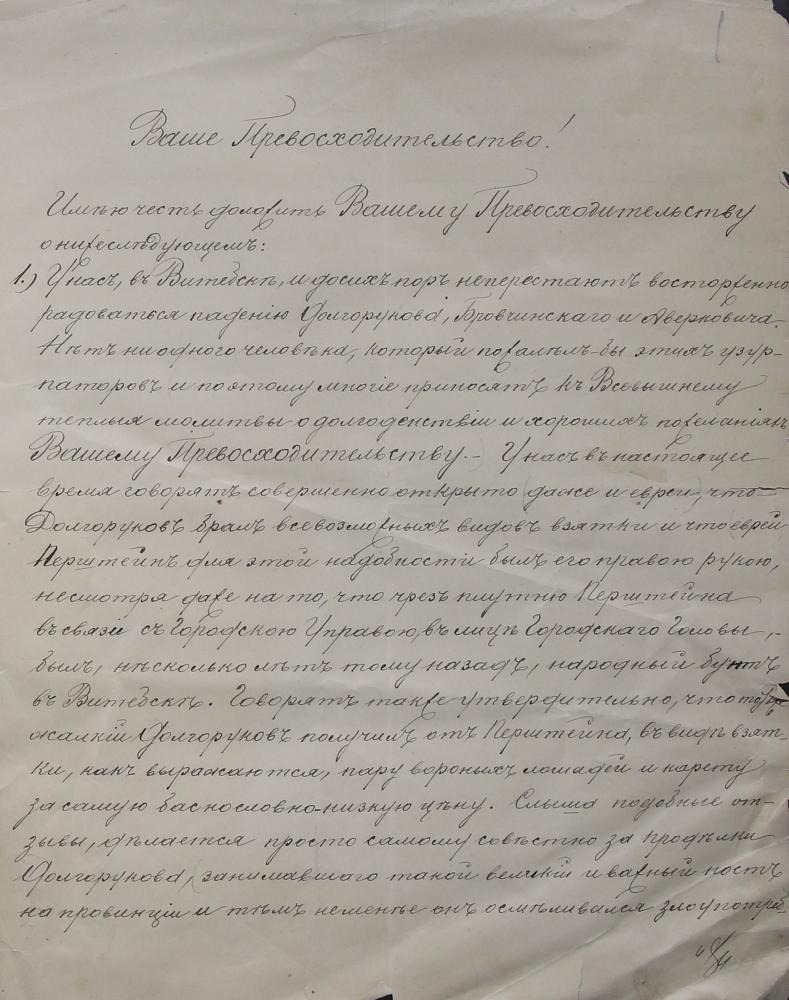 Ваше Превосходительство!
Имѣю честь доложить Вашему Превосходительству
о нижеслѣдующемъ:
1.) У насъ, въ Витебскѣ, и досихъ поръ неперестаютъ восторженно
радоваться паденію Долгорукова, Бровчинскаго и Аверковича.
Нѣтъ ниодного человѣка, который пожалѣлъ-бы этихъ узур-
паторовъ и поэтому многіе приносятъ къ Всевышнему
теплыя молитвы о долгоденствіи и хорошихъ пожеланіяхъ
Вашему Превосходительству. – У насъ въ настоящее
время говорятъ совершенно открыто (даже и евреи, что
Долгоруковъ бралъ всевозможныхъ видовъ взятки и что еврей
Перштейнъ для этой надобности былъ его правою рукою,
несмотря даже на то, что чрезъ плутню Перштейна
въ связи съ Городскою Управою, въ лицѣ Городскаго Головы, -
былъ, нѣсколько лѣтъ тому назадъ, народный бунтъ
въ Витебскѣ. Говорятъ также утвердительно, что
жалкій Долгоруковъ получилъ отъ Перштейна, въ видѣ взят-
ки, какъ выражаются, пару вороныхъ лошадей и карету
за самую баснословно-низкую цѣну. Слыша подобные от-
зывы, дѣлается просто самому совѣстно за продѣлки
Долгорукова, занимавшаго такой великій и важный постъ
на провинціи и тѣмъ неменѣе онъ осмѣливался злоупотреб